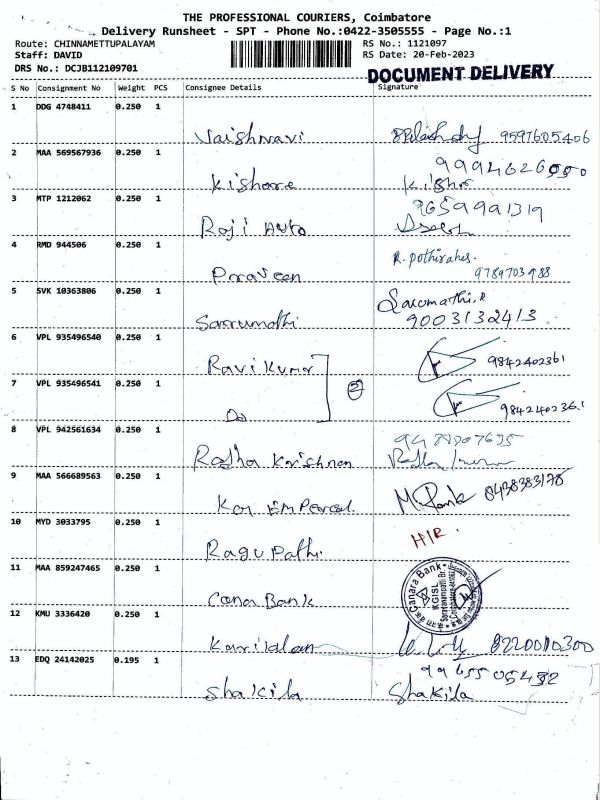 THE PROFESSIONAL COURIERS, Coimbatore
Delivery Runsheet - SPT - Phone No.:0422-3505555 - Page No.:1
Route: CHINNAMETTUPALAYAM RS No.: 1121097
Staff: DAVID RS Date: 20-Feb-2023
DRS No.: DCJB112109701
DOCUMENT DELIVERY
S No Consignment No Weight PCS Consignee Details Signature
1 DDG 4748411 0.250 1
Vaishnavi 9597605406
2 MAA 569567936 0.250 1
Kishore
3 MTP 1212062 0.250 1 9659991319
Roji Auto
4 RMD 944506 0.250 1
Praveen 9789703988
5 SVK 10363806 0.250 1
9003132413
6 VPL 935496540 0.250 1
Ravi Kumar 9842402361
7 VPL 935496541 0.250 1 2
Do 9842402361
8 VPL 942561634 0.250 1
Radha Krishnan
9 MAA 566689563 0.250 1
8438383178
10 MYD 3033795 0.250 1
Ragu Pathi
11 MAA 859247465 0.250 1
Canara Bank
KGISL
Cana Bank
12 KMU 3336420 0.250 1
8220010300
13 EDQ 24142025 0.195 1
Shakila Shakila